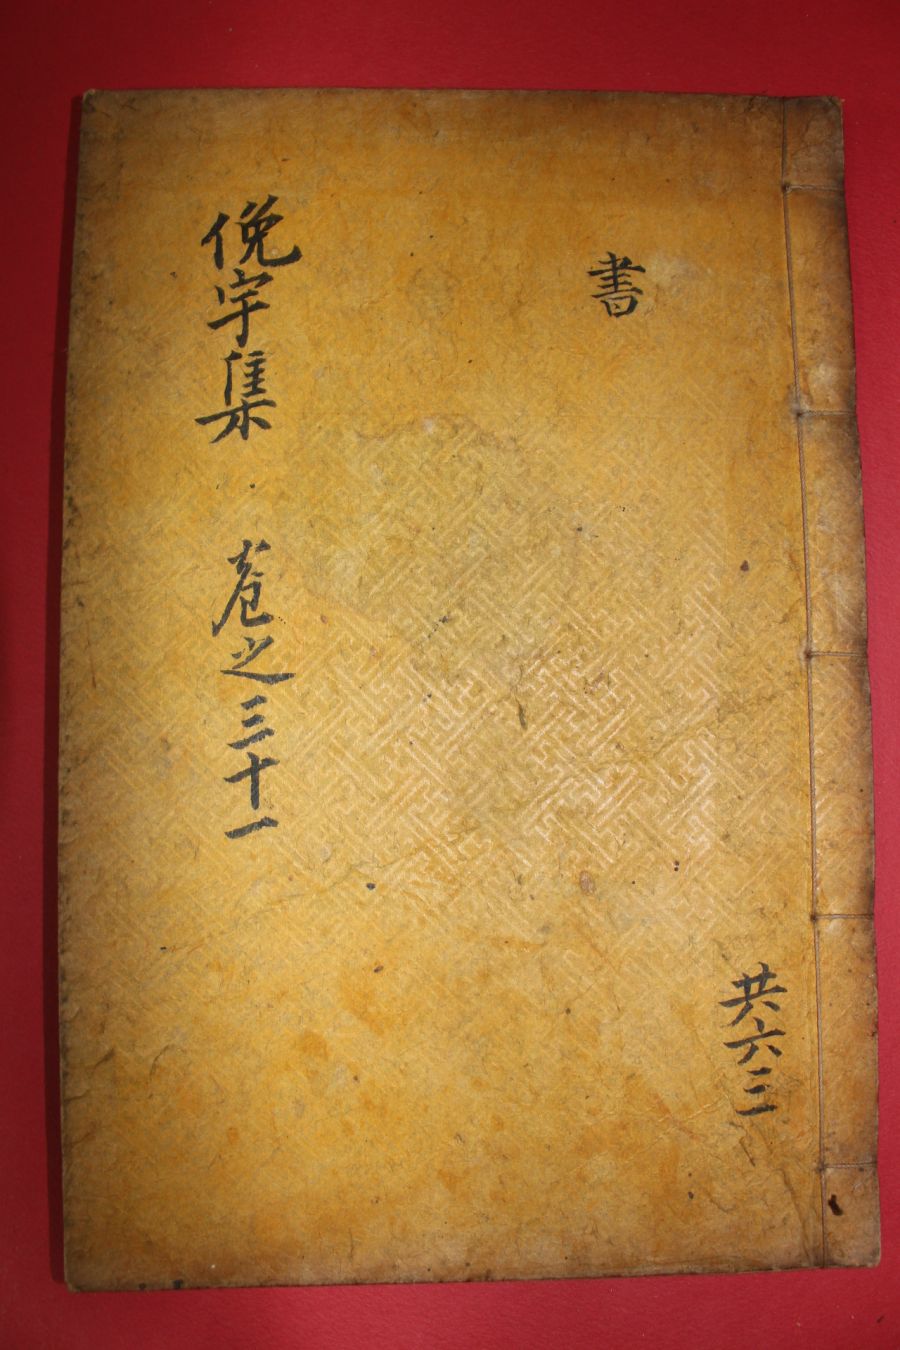 俛宇集 卷之三十一
書
共六三